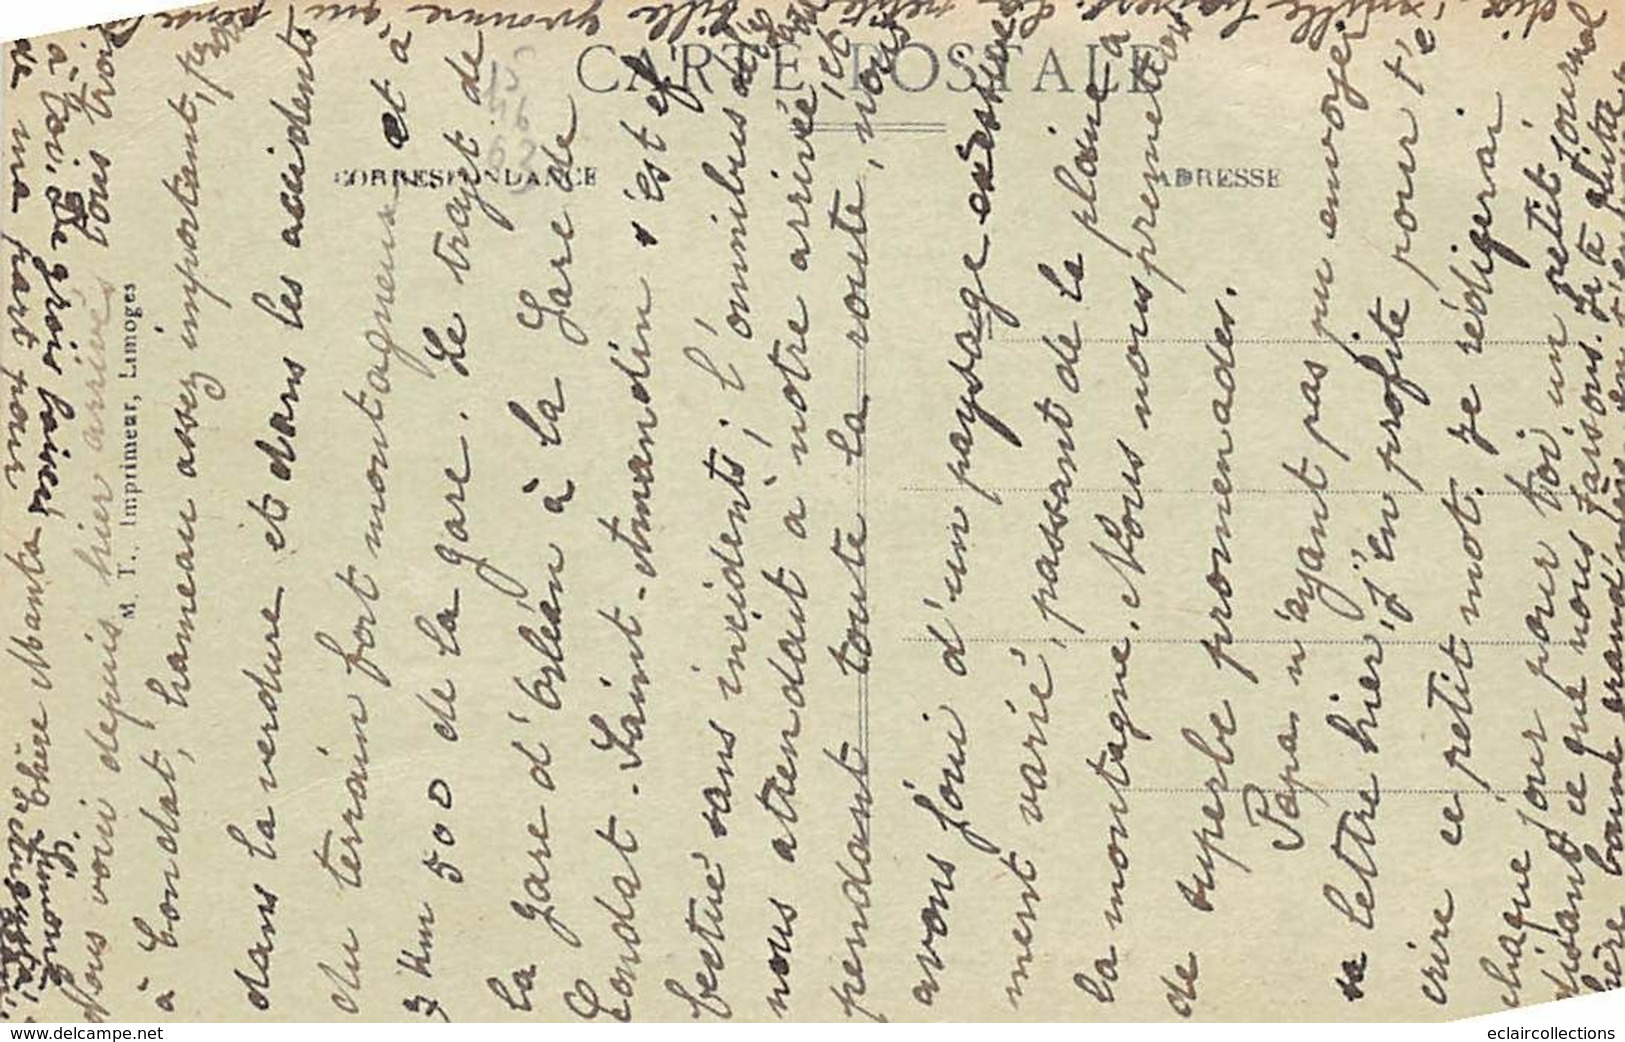 CARTE POSTALE
CORRESPONDANCE
ADRESSE
M. T. Imprimeur, Limoges
Chère Manka
Nous voici depuis hier arrivés tous trois
à Condat, hameau assez important,
dans la verdure et dans les accidents
du terrain fort montagneux et à
3 km 500 de la gare. Le trajet de
la gare d'Orléan à la Gare de
Condat-Saint-Amandin s'est ef
fectué sans incidents; l'omnibus
nous attendait à notre arrivée et
pendant toute la route, nous
avons joui d'un paysage
ment varié, passant de la plaine à
la montagne. Nous nous promettons
de superbe promenades.
Papa n'ayant pas pu envoyer
sa lettre hier j'en profite pour t'é
crire ce petit mot. Je rédigerai
chaque jour pour toi un petit journal
disant ce que nous faisons. Je te
ma part pour
à toi. De gros baisers
Simone
eclaircollections